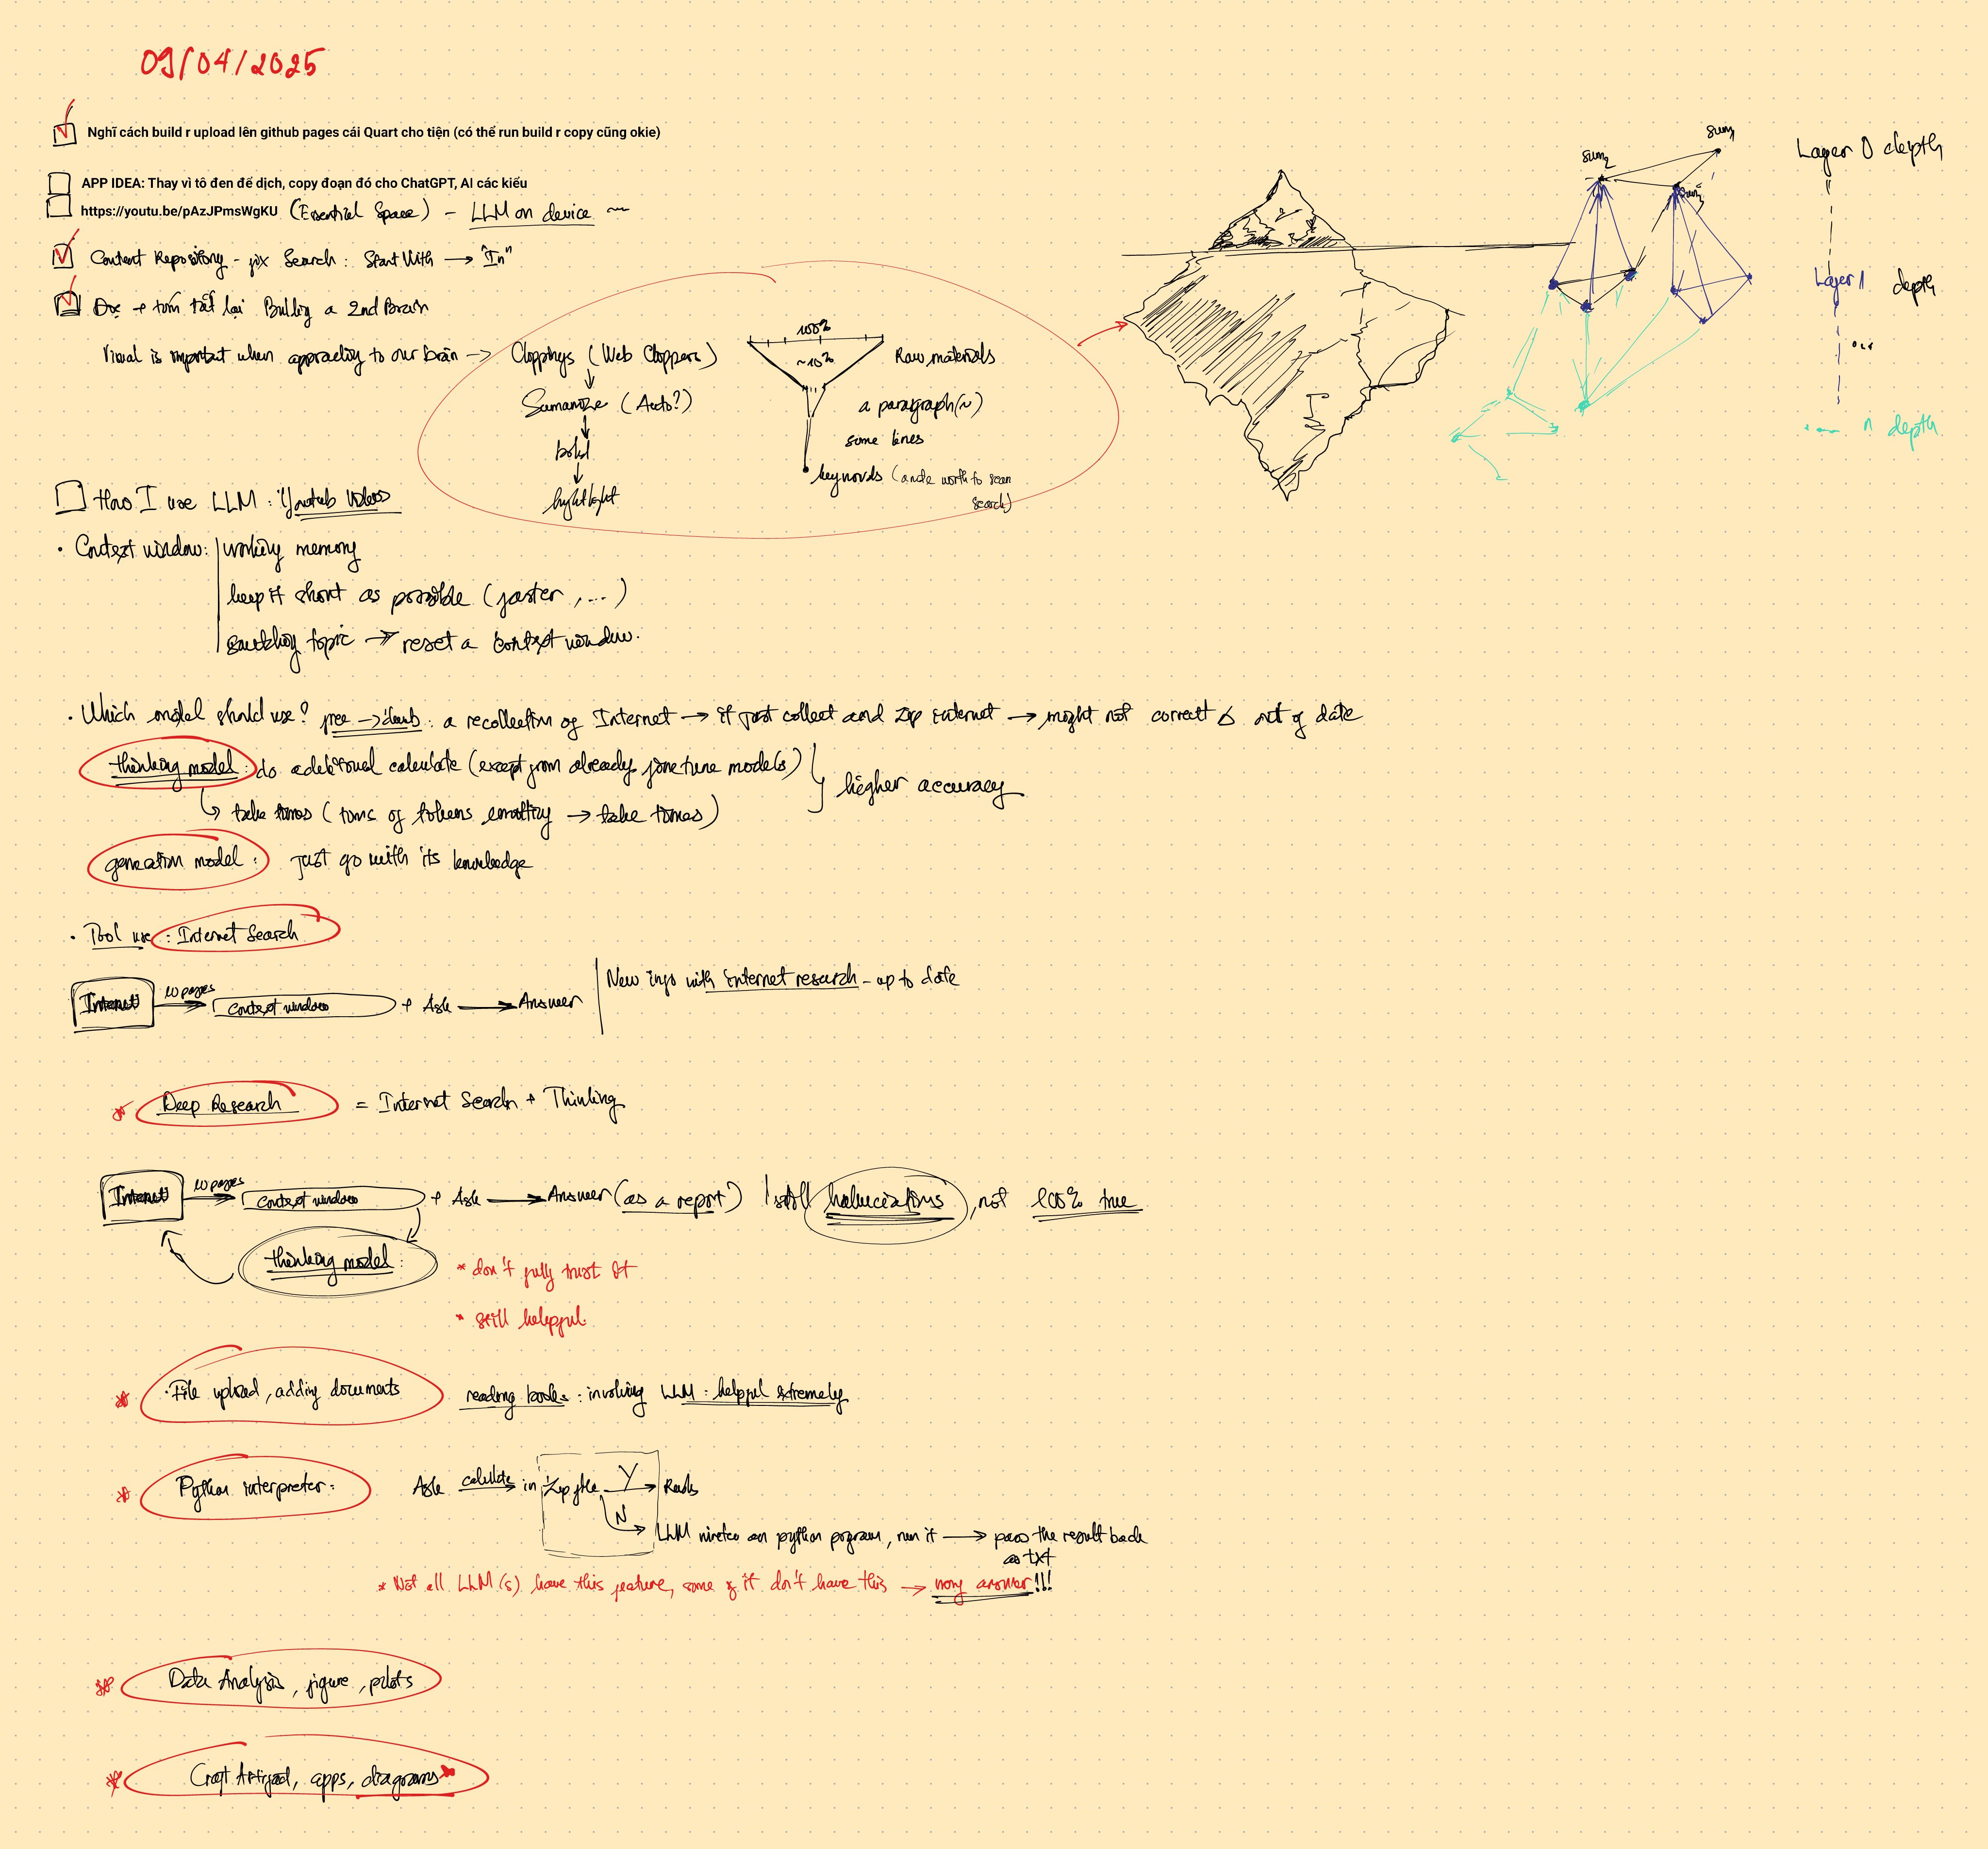 09/04/2025
Nghĩ cách build r upload lên github pages cái Quart cho tiện (có thể run build r copy cũng okie)
APP IDEA: Thay vì tô đen để dịch, copy đoạn đó cho ChatGPT, AI các kiểu
https://youtu.be/pAzJPmsWgKU (Essential Space) - LLM on device
Content Repository - fix Search: Start With → "In"
Đọc + tóm tắt lại Building a 2nd Brain
Visual is important when approaching to our brain →
(Web Clippers)
(Auto?)
bold
highlight
100%
~10%
Raw materials
a paragraph(~)
some lines
keywords (worth to scan
search)
Sum
Sum
Sum
Layer 0 depth
Layer 1 depth
...
n depth
How I use LLM: Youtub videos
• Context window: working memory
keep it short as possible (faster, ...)
switching topic → reset a context window.
• Which model should use? free → dumb: a recollection of Internet → it just collect and zip internet → might not correct & out of date
thinking model: do additional calculate (except from already finetune models)
higher accuracy
↳ take times (tons of tokens → take times)
generation model: just go with its knowledge
• Tool use: Internet Search
Internet 10 pages → Context window + Ask → Answer
New info with internet research - up to date
* Deep Research = Internet Search + Thinking
Internet 10 pages → Context window + Ask → Answer (as a report) ! still halucinations, not 100% true
thinking model:
* don't fully trust it
* still helpful
* File upload, adding documents
reading books: involving LLM: helpful extremely
* Python interpreter:
Ask calculate → in zip file Y →
N → LLM an python program, run it → pass the result back
as txt
* Not all LLM(s) have this feature, some of it don't have this → wrong answer!!!
* Data Analysis, figure, plots
* apps, diagrams